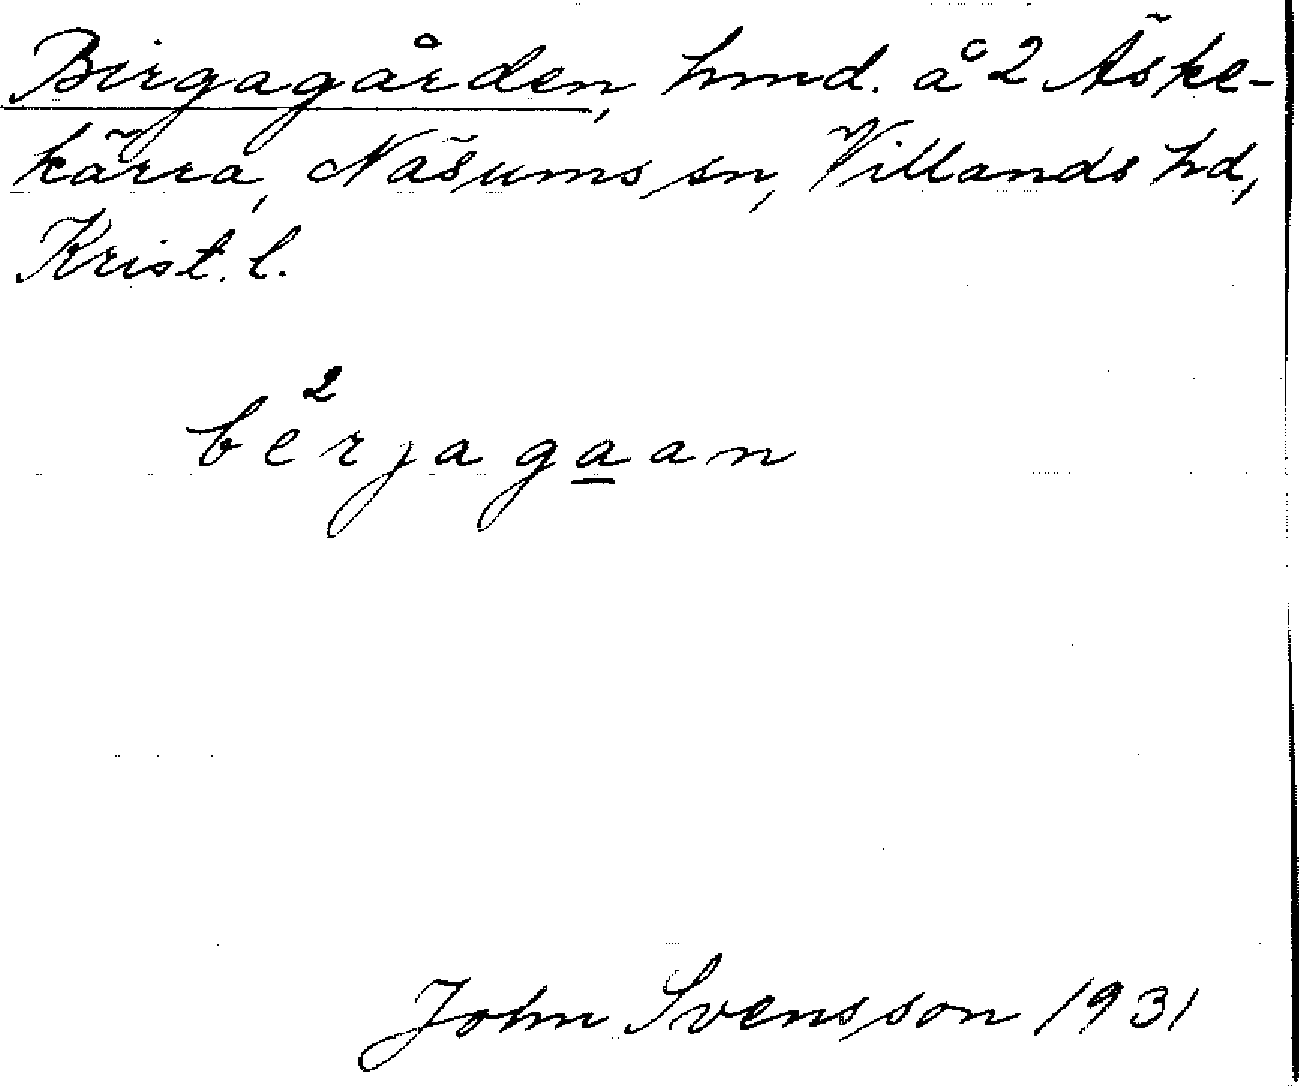 Birgagården, hmd. å 2 Äske-
kärra, Näsums sn, Villands hd,
Krist. l.
2
berjagaan
John Svensson 1931